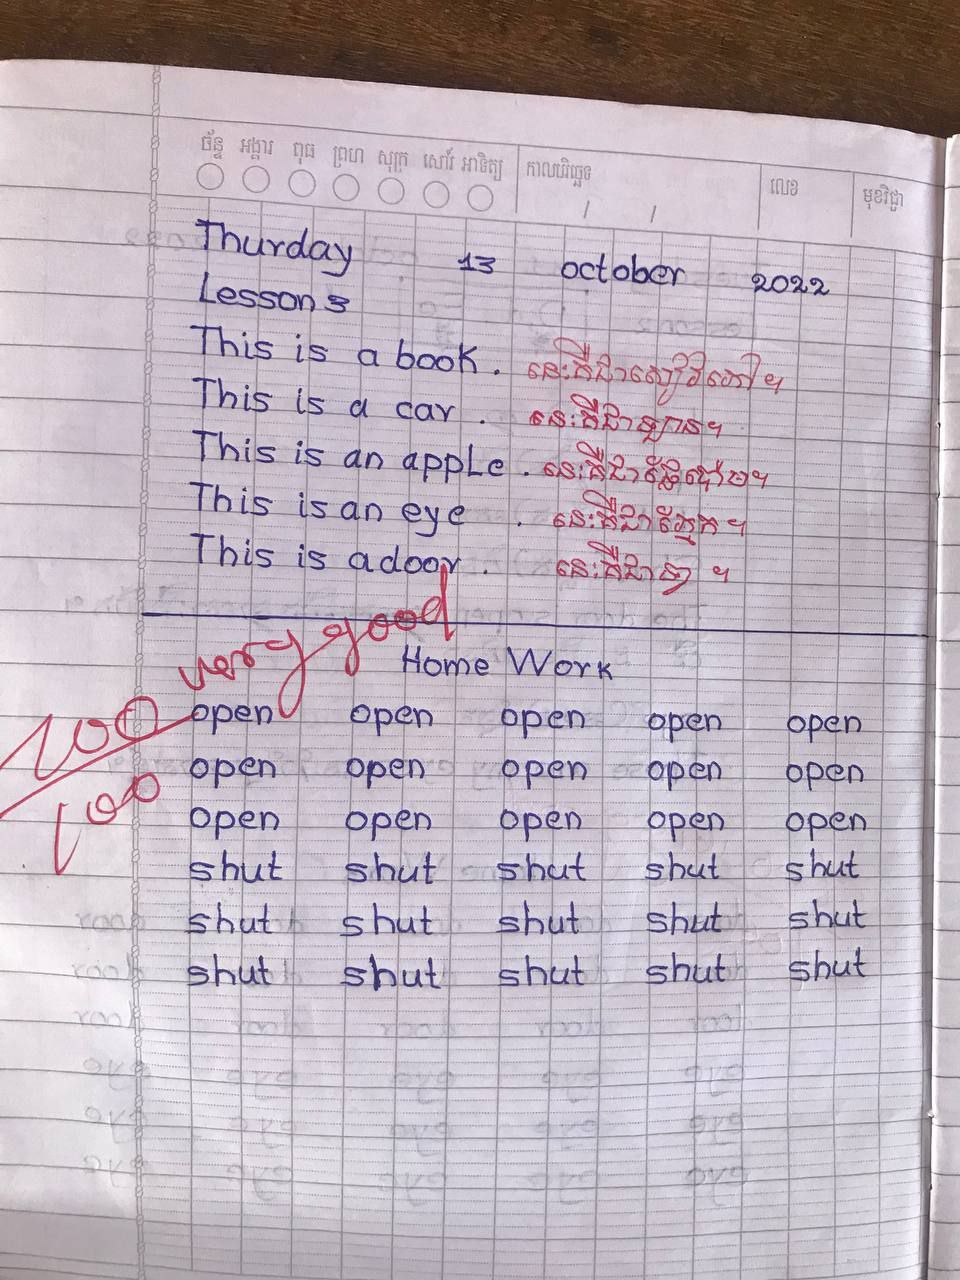 ច័ន្ទ អង្គារ ពុធ ព្រហ សុក្រ សៅរ៍ អាទិត្យ កាលបរិច្ឆេទ / / លេខ មុខវិជ្ជា
Thurday 13 october 2022
Lesson 3
This is a book. នេះគឺជាសៀវភៅ។
This is a car. នេះគឺជាឡាន។
This is an apple. នេះគឺជាផ្លែប៉ោម។
This is an eye. នេះគឺជាភ្នែក។
This is a door. នេះគឺជាទ្វា ។
very good
Home Work
100
100
open open open open open
open open open open open
open open open open open
shut shut shut shut shut
shut shut shut shut shut
shut shut shut shut shut